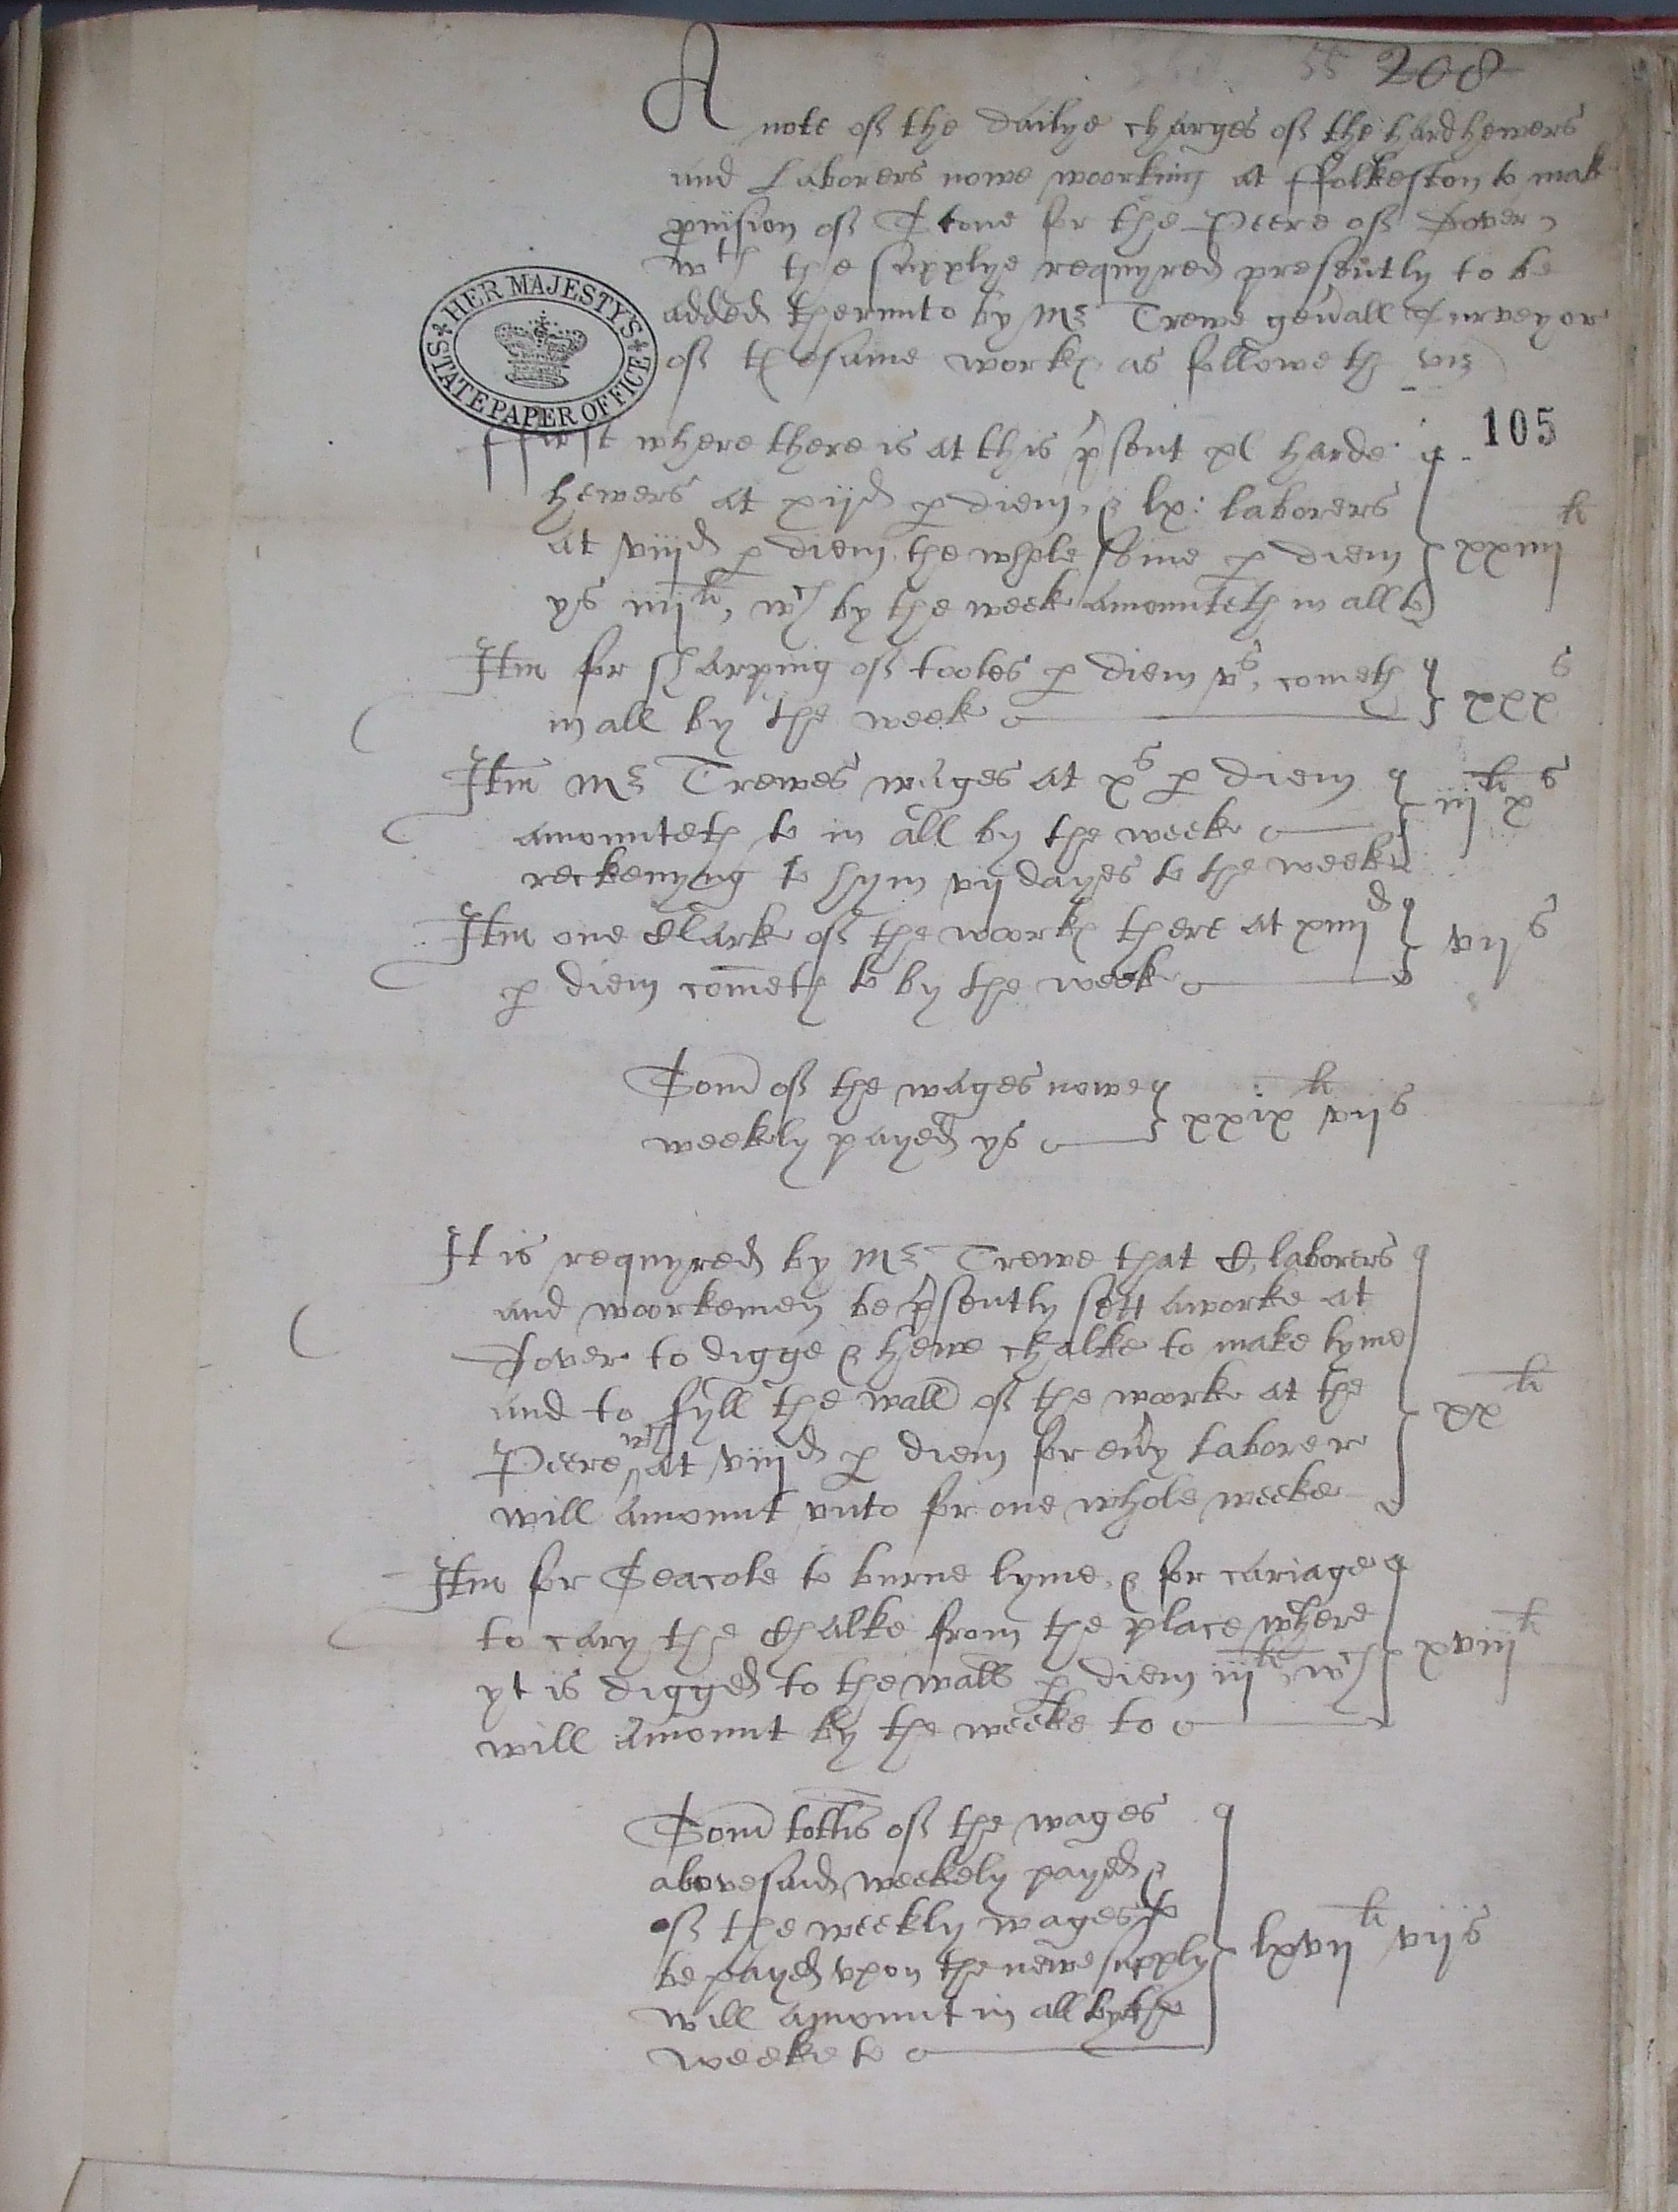 55 208
A note off the dailye charges off the hardhewers
and Laborers nowe woorking at ffolkeston to mak
p̱vision off Stone for the Peere off Dover
wth the supplye requyred presently to be
added therunto by Mr Trewe gen̄all Surveyor
off thesame workꝭ as followeth viz
HER MAJESTY'S STATE PAPER OFFICE
105
ffirst where there is at this p̄sent xl harde
hewers at xijd ꝑ diem, & lx: laborers
at viijd ꝑ diem the whole some ꝑ diem
ys iiijli, wch by the week amounteth in all to } xxiiijli
Itm for sharping off tooles ꝑ diem vs, cometh
in all by the week } xxxs
Itm Mr Trewes wages at xs ꝑ diem
amounteth to in all by the week } iijli xs
reckenyng to hym vij dayes to the week
Itm one Clark off the workꝭ there at xiiijd
ꝑ diem cometh to by the week } vijs
Som̄ off the wages nowe
weekly payed ys } xxixli vijs
It is requyred by Mr Trewe that C, laborers
and woorkemen be p̄sently sett aworke at
Dover to digge & hewe chalke to make lyme
and to fyll the wall off the woork at the
Peere, wch at viijd ꝑ diem for ev̄y laborer } xxli
will amount unto for one whole weeke
Itm for Seacole to burne lyme, & for cariage
to cary the Chalke from the place where
yt is digged to the walls ꝑ diem iijli, wch } xviijli
will amount by the weeke to
Som̄ tottlis off the wages
abovesaid weekely payed &
off the weekly wages to
be payed upon the newe supply } lxvijli vijs
will amount in all by the
weeke to